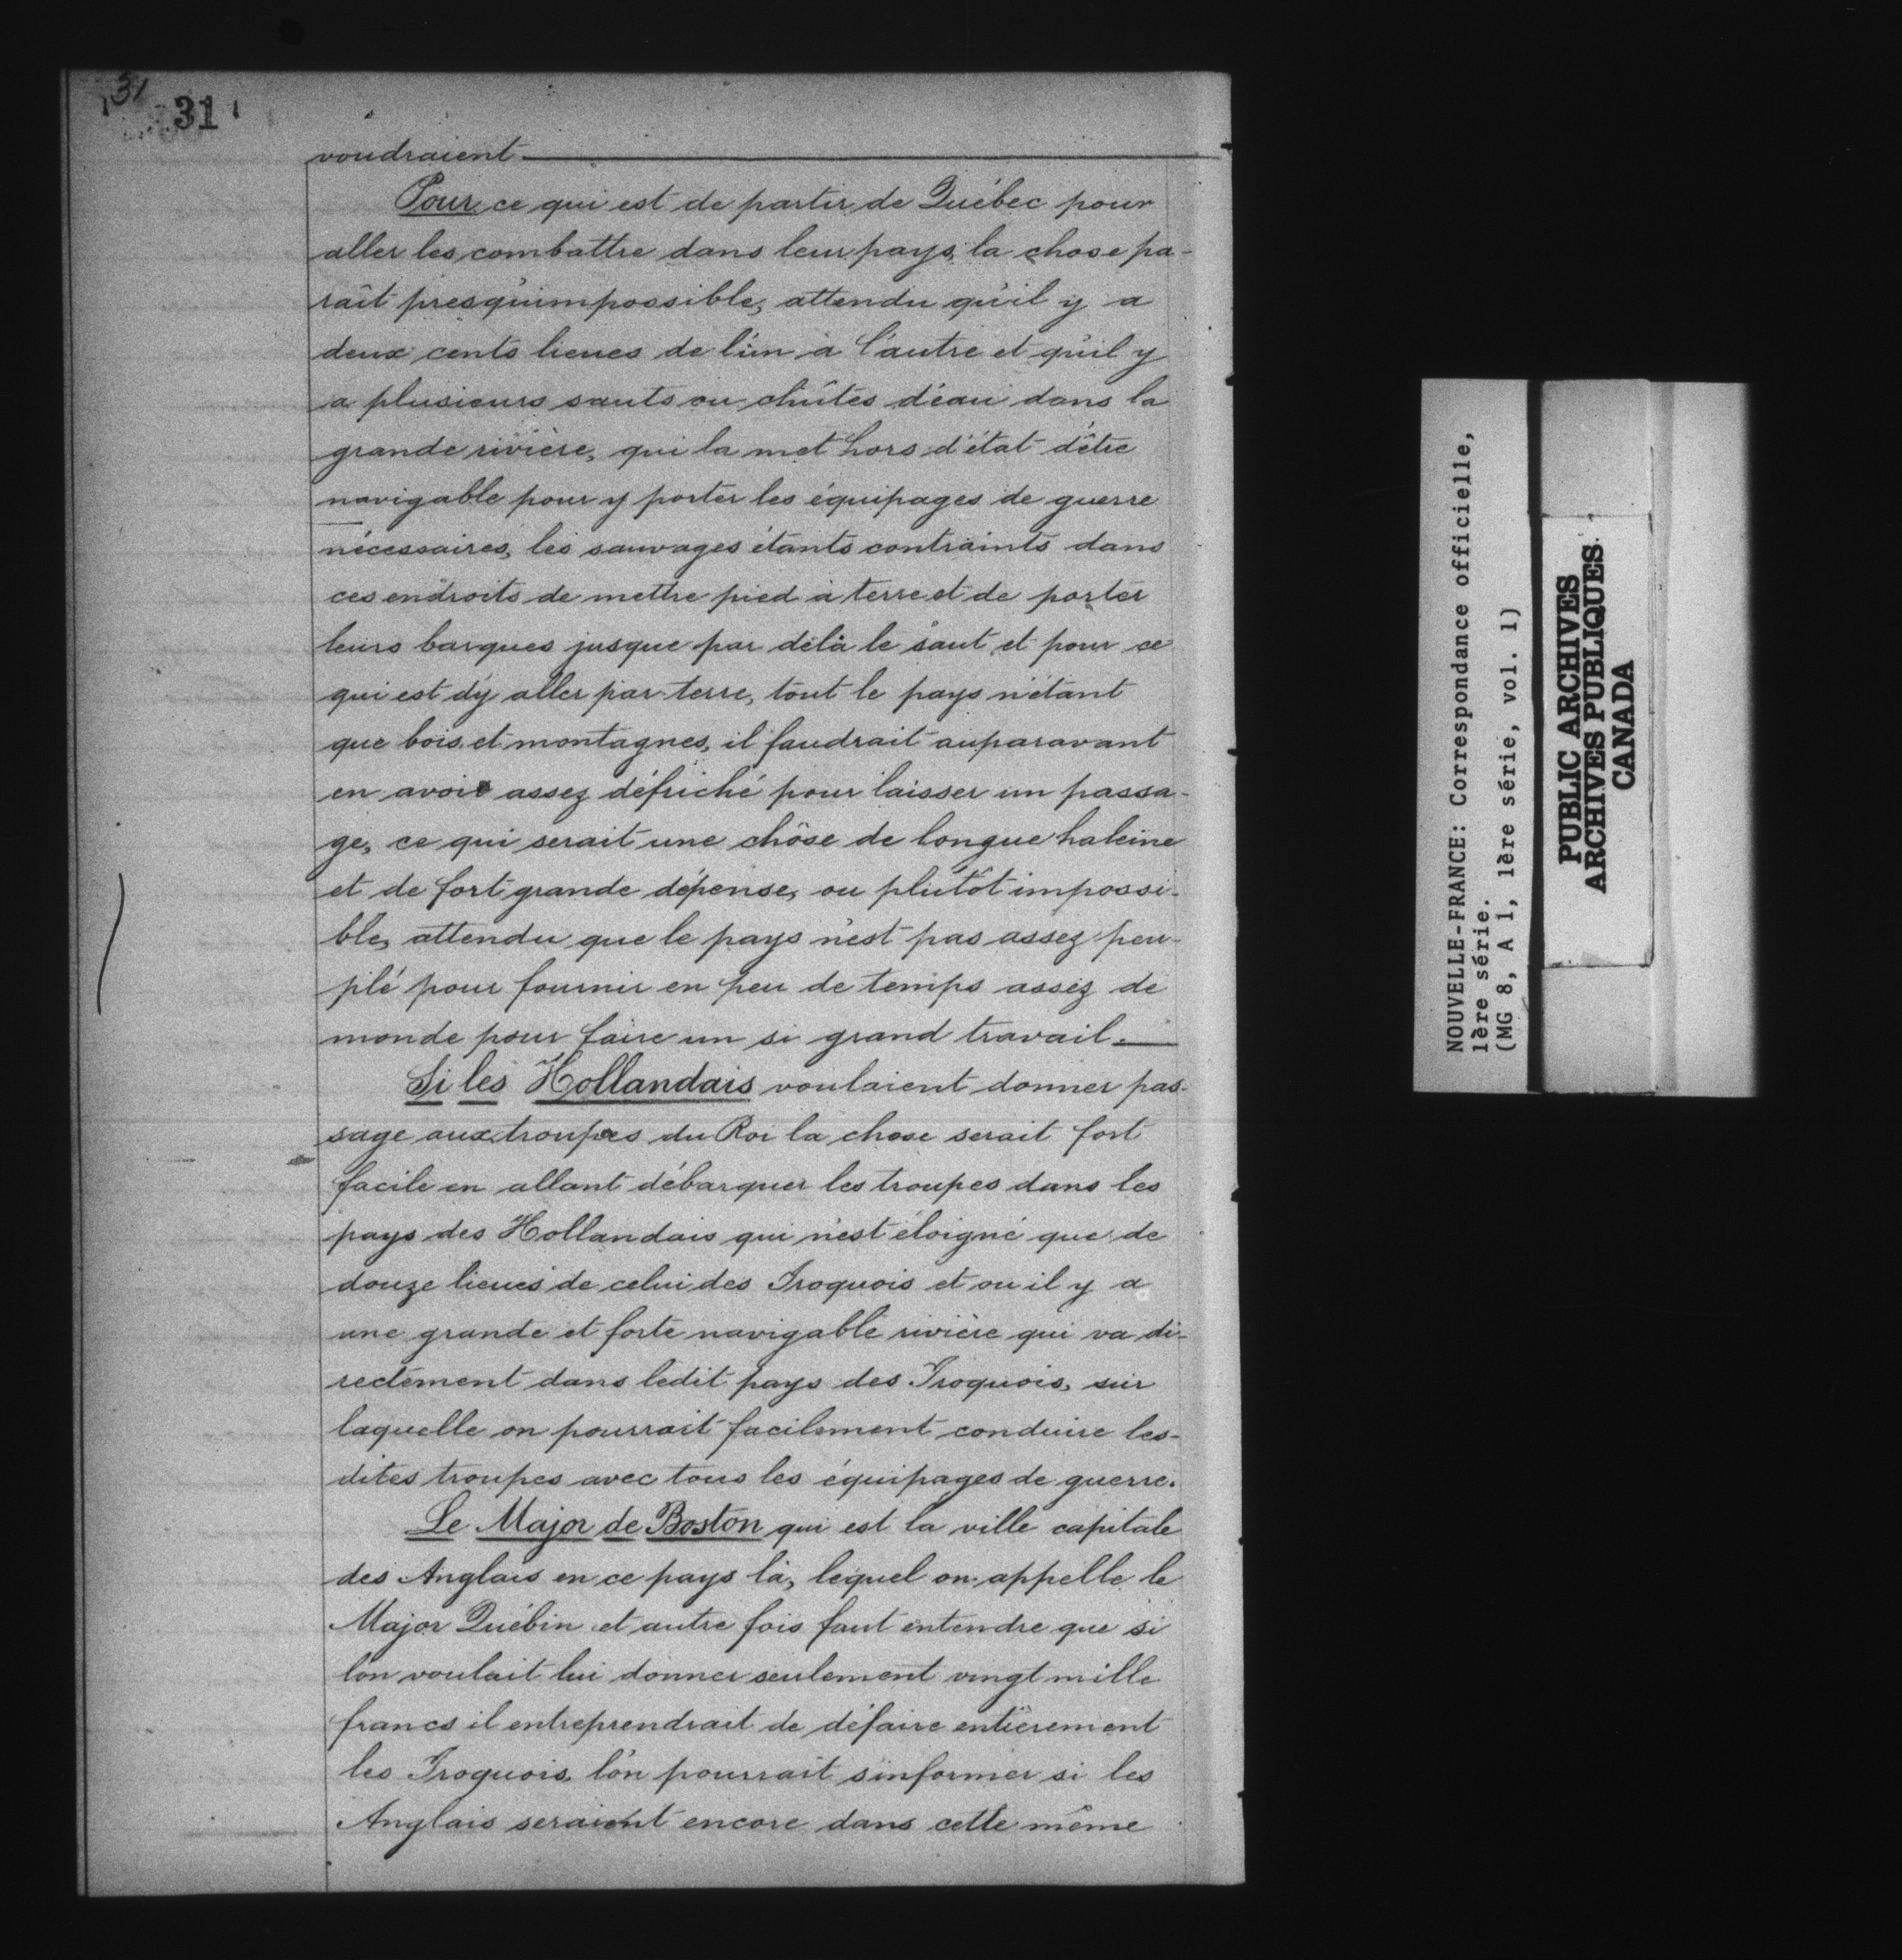 31
31
voudraient
Pour ce qui est de partir de Québec pour
aller les combattre dans leur pays, la chose pa-
raît presqu'impossible, attendu qu'il y a
deux cents lieues de l'un à l'autre et qu'il y
a plusieurs sauts ou chûtes d'eau dans la
grande rivière, qui la met hors d'état d'être
navigable pour y porter les équipages de guerre
nécessaires, les sauvages étants contraints dans
ces endroits de mettre pied à terre et de porter
leurs barques jusque par délà le saut, et pour ce
qui est d'y aller par terre, tout le pays n'étant
que bois et montagnes, il faudrait auparavant
en avoir assez défriché pour laisser un passa-
ge, ce qui serait une chôse de longue haleine
et de fort grande dépense, ou plutôt impossi-
ble, attendu que le pays n'est pas assez peu-
plé pour fournir en peu de temps assez de
monde pour faire un si grand travail.
Si les Hollandais voulaient donner pas-
sage aux troupes du Roi la chose serait fort
facile en allant débarquer les troupes dans les
pays des Hollandais qui n'est éloigné que de
douze lieues de celui des Iroquois et ou il y a
une grande et forte navigable rivière qui va di-
rectement dans ledit pays des Iroquois, sur
laquelle on pourrait facilement conduire les-
dites troupes avec tous les équipages de guerre.
Le Major de Boston qui est la ville capitale
des Anglais en ce pays là, lequel on appelle le
Major Québin et autre fois faut entendre que si
l'on voulait lui donner seulement vingt mille
francs il entreprendrait de défaire entièrement
les Iroquois, l'on pourrait s'informer si les
Anglais seraient encore dans cette même
NOUVELLE-FRANCE: Correspondance officielle,
1ère série.
(MG 8, A 1, 1ère série, vol. 1)
PUBLIC ARCHIVES
ARCHIVES PUBLIQUES
CANADA